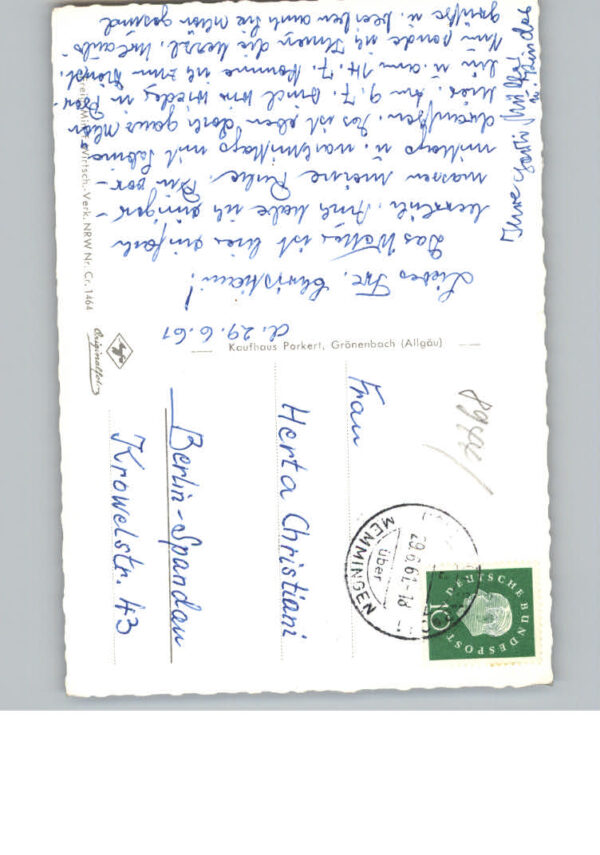 d. 29.6.61
Liebes Frl. Christiani!
Das Wetter ist hier einfach
herrlich. Auch habe ich einiger-
massen meine Ruhe. Bin vor-
mittags u. nachmittags mit
draußen. Es ist eben doch ganz allein
hier. Am 9.7. sind wir wieder in
u. am 14.7. komme ich zum Dienst.
Nun sende ich Ihnen die herzl. Urlaubs-
grüße u. bleiben auch Sie schön gesund
Ihre
u. Kinder
Kaufhaus Parkert, Grönenbach (Allgäu)
Wirtsch.-Verk. NRW Nr. Cr. 1464
Originalfoto
Frau
Herta Christiani
Berlin-Spandau
Krowelstr. 43
29.6.61-18
über
MEMMINGEN
DEUTSCHE BUNDESPOST
10